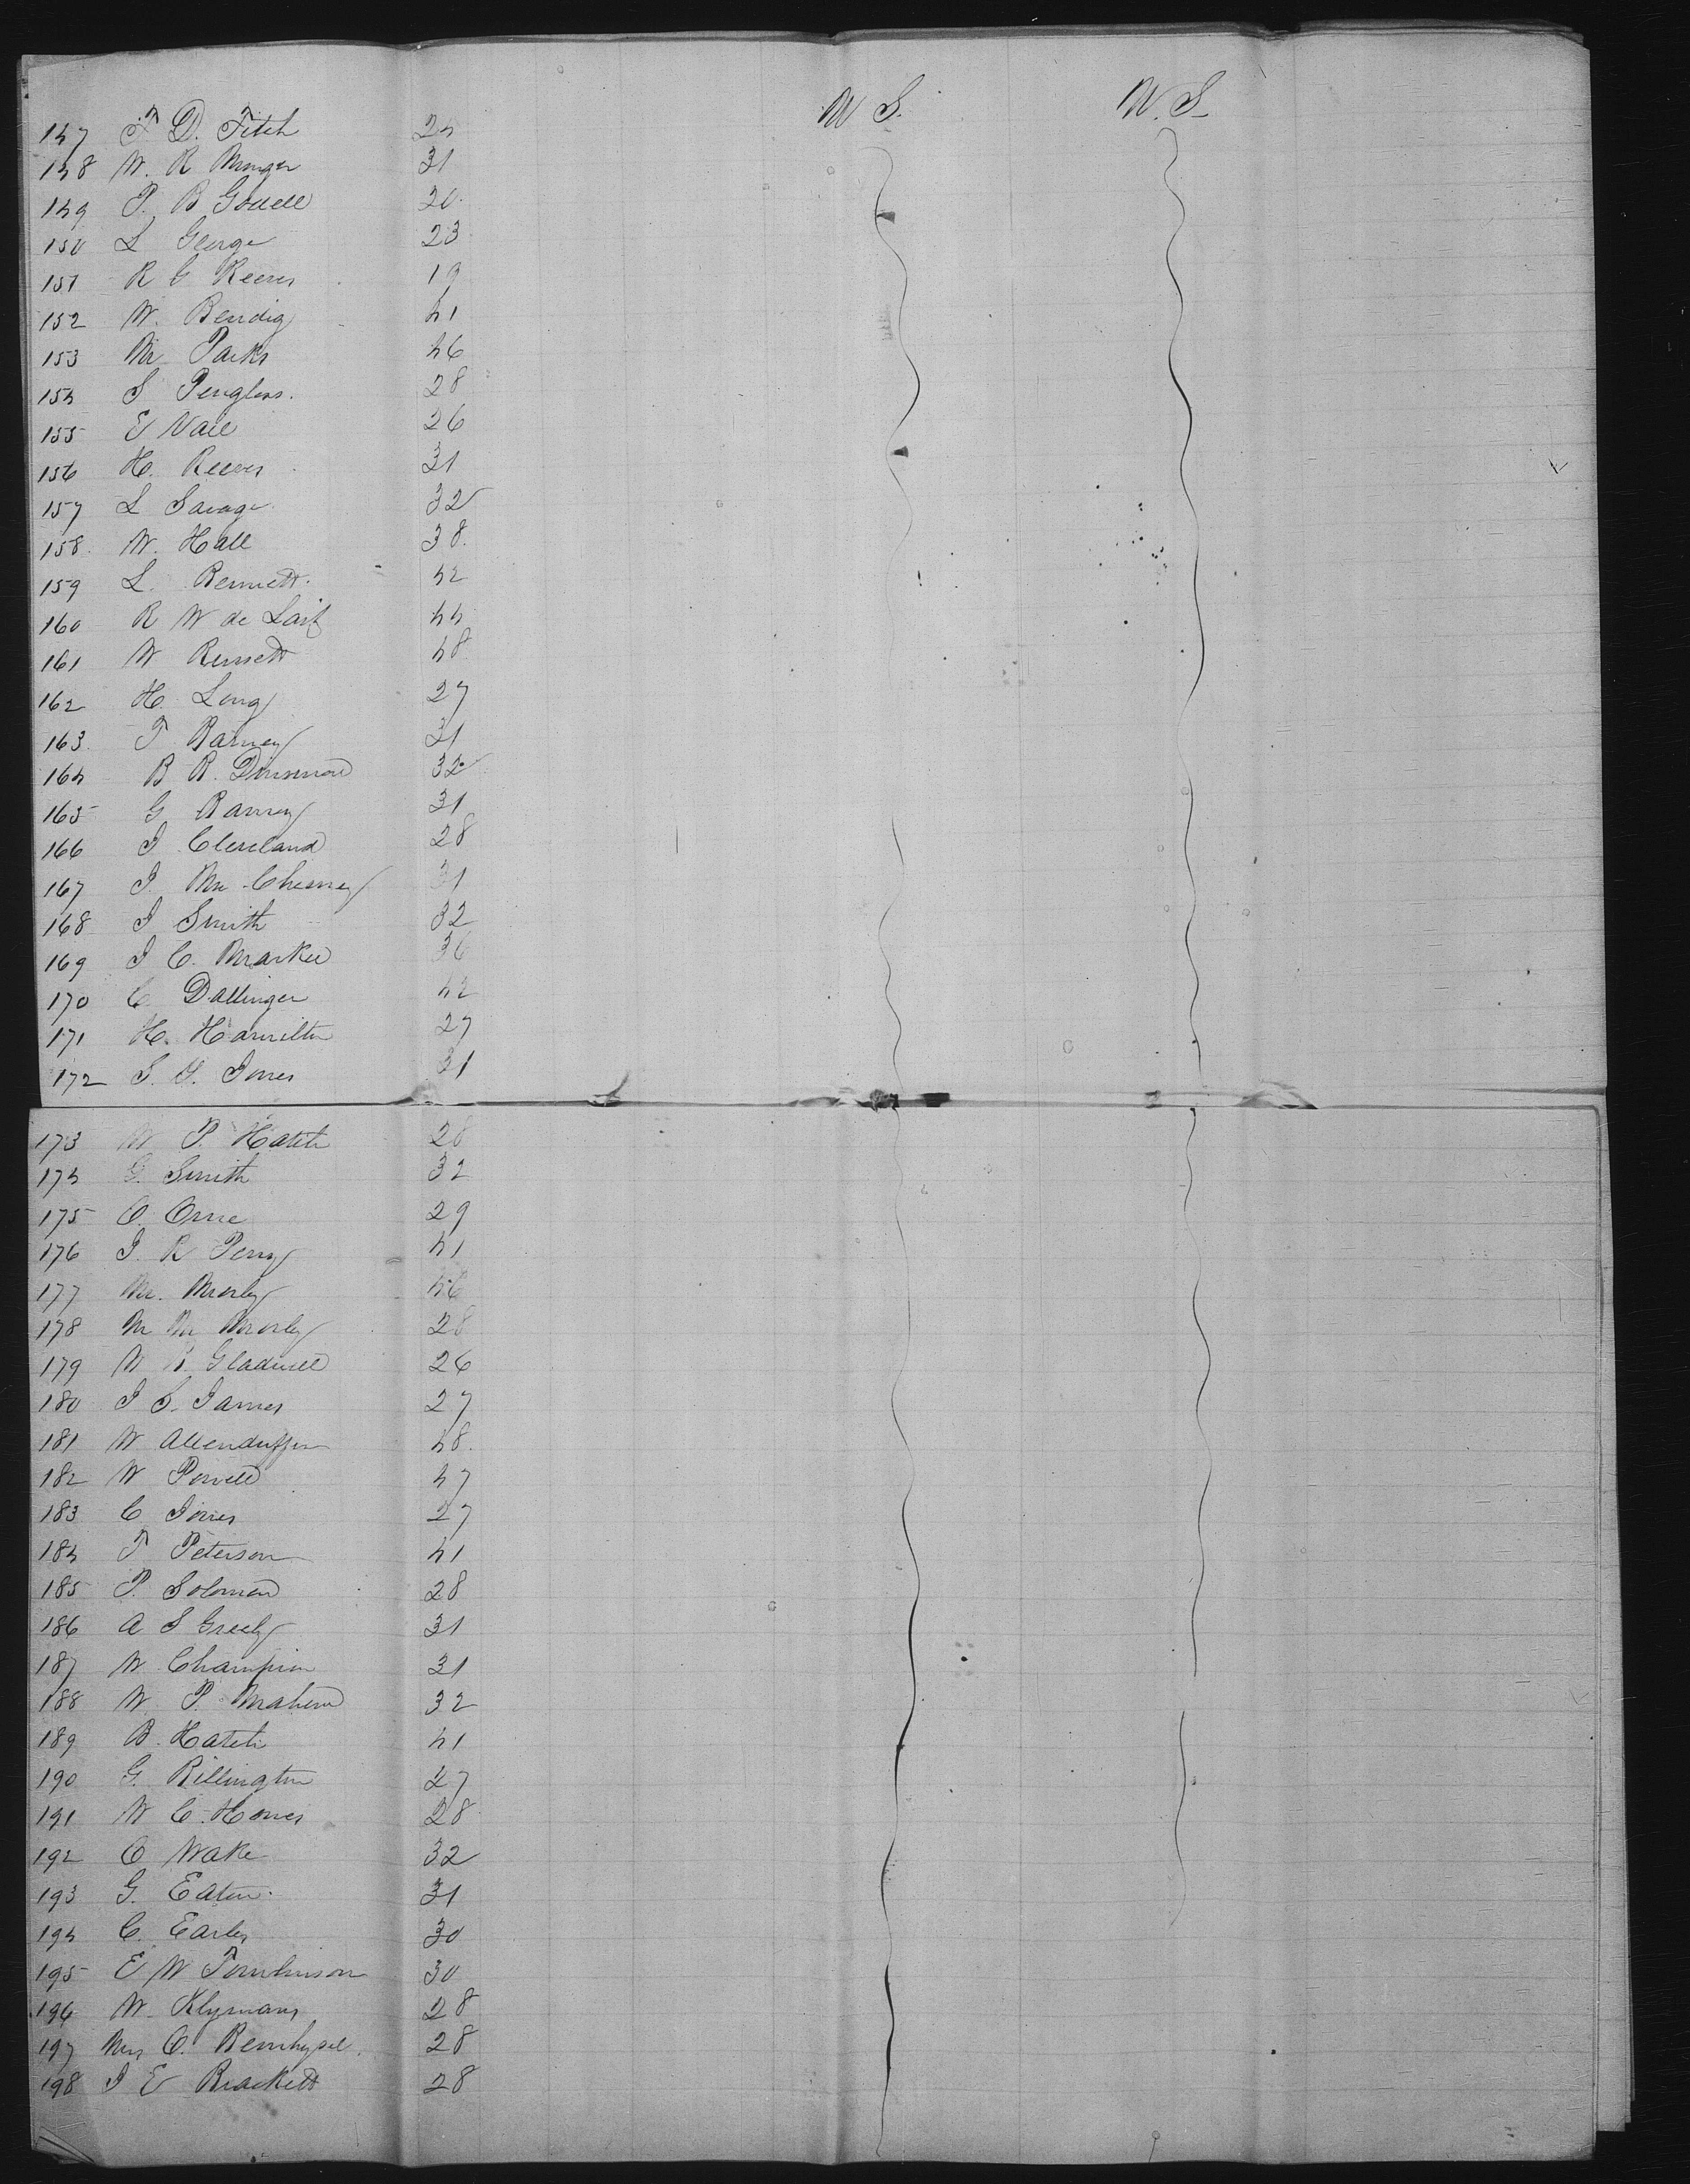 U S. U. S.
147 F D. Fitch 24
148 W. R Munger 31
149 P. B Goddell 20.
150 L George 23
151 R G Reeves 19
152 W. Bendig 41
153 Mr Parks 46
154 S Penglass. 28
155 E Vail 26
156 H. Reeves 31
157 L Savage 32
158. W. Hall 38.
159 L. Bennett. 42
160 R W de 44
161 W Bennett 48
162 H. Long 27
163. T Barney 31
164 B R. Dinsmore 32
165 G Barney 31
166 J Cleveland 28
167 J. Mc Chesney 31
168 J Smith 32
169 J C. Markee 36
170 C Dallinger 42
171 H. Hamilton 27
172 S. S. Jones 31
173 W P. Hatch 28
174 G. Smith 32
175 O. Orne 29
176 J. R Perry 41
177 Mr. Morley 46
178 Mr Morley 28
179 W Gladwell 26
180 J S. James 27
181 W Allenduffer 48.
182 W Powell 47
183 C Jones 27
184 T Peterson 41
185 P. Solomon 28
186 A S Greely 31
187 W Champion 31
188 W. P. Mahew 32
189 B. Hatch 41
190 G. Billington 27
191 W C. Howes 28
192 O Wake 32
193 G. Eaton. 31
194 C. Earley 30
195 E W Tomlinson 30
196 W. Klymans 28
197 Mrs C. 28
198 J E Brackett 28